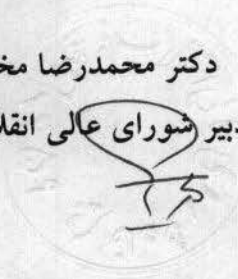 دکتر محمدرضا مخ
دبیر شورای عالی انقلا